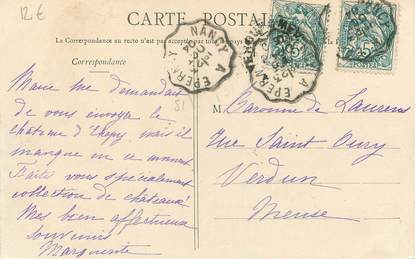 12€
CARTE POSTALE
La Correspondance au recto n'est pas acceptée par tous
Correspondance
NANCY A EPERNAY
51
Marie me demandait
de vous envoyer le
château d' mais il
manque en ce moment.
Faites vous spécialement
collection de châteaux?
Mes bien affectueux
souvenirs
Marguerite
M Baronne de Laurens
Rue Saint
Verdun
Meuse